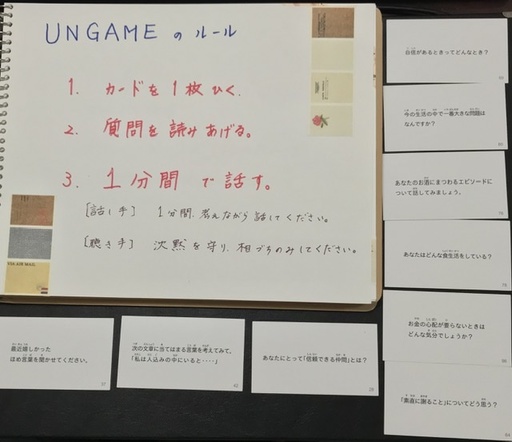 UNGAME のルール
1. カードを1枚ひく.
2. 質問を読みあげる。
3. 1分間で話す。
[話し手] 1分間、考えながら話してください。
[聴き手] 沈黙を守り、相づちのみしてください。
自信があるときってどんなとき?
今の生活の中で一番大きな問題は
なんですか?
あなたのお酒にまつわるエピソードに
ついて話してみましょう。
あなたはどんな食生活をしている?
お金の心配が要らないときは
どんな気分でしょうか?
「素直に謝ること」についてどう思う?
最近嬉しかった
ほめ言葉を聞かせてください。
次の文章に当てはまる言葉を考えてみて。
「私は人込みの中にいると・・・・」
あなたにとって「信頼できる仲間」とは?